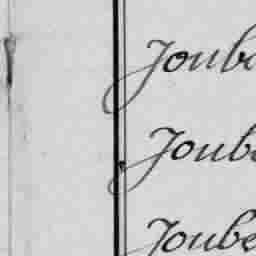 Joube
Joube
Joube